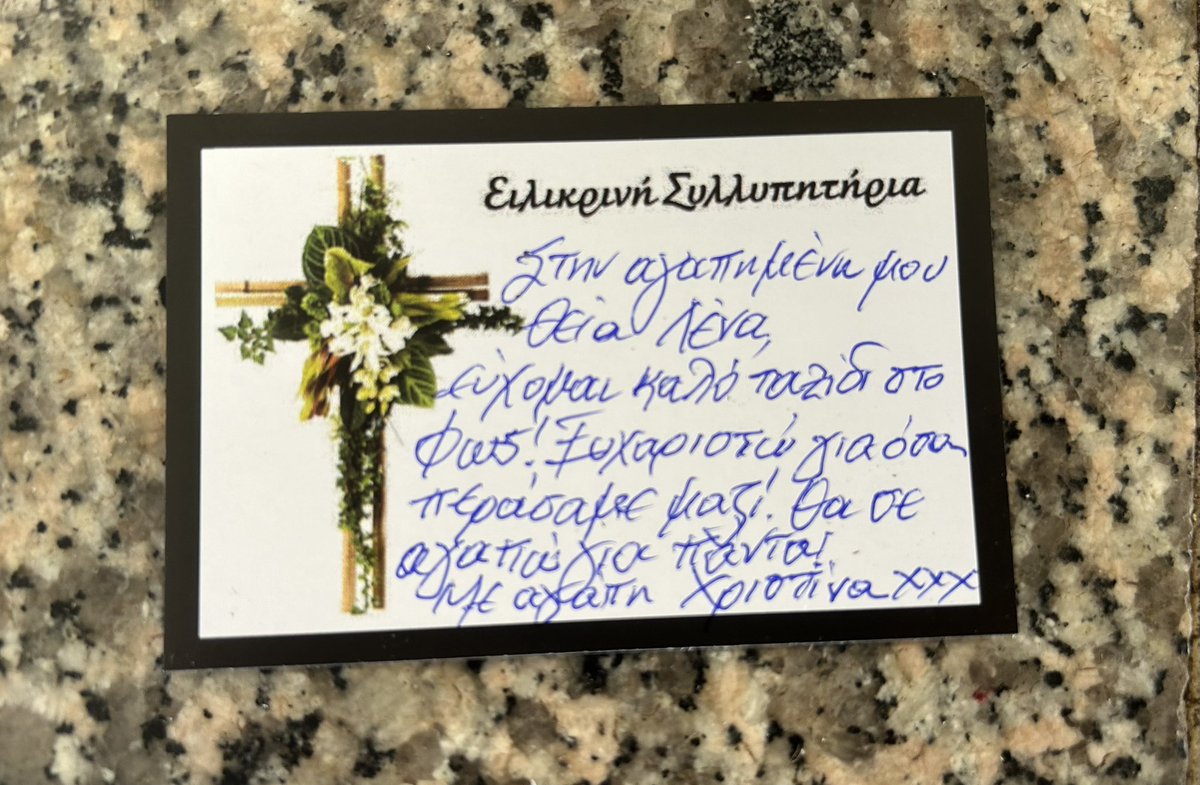 Ειλικρινή Συλλυπητήρια
Στην αγαπημένη μου
θεία Λένα,
εύχομαι καλό ταξίδι στο
Φως! Ευχαριστώ για όσα
περάσαμε μαζί! Θα σε
αγαπώ για πάντα!
Με αγάπη Χριστίνα xxx